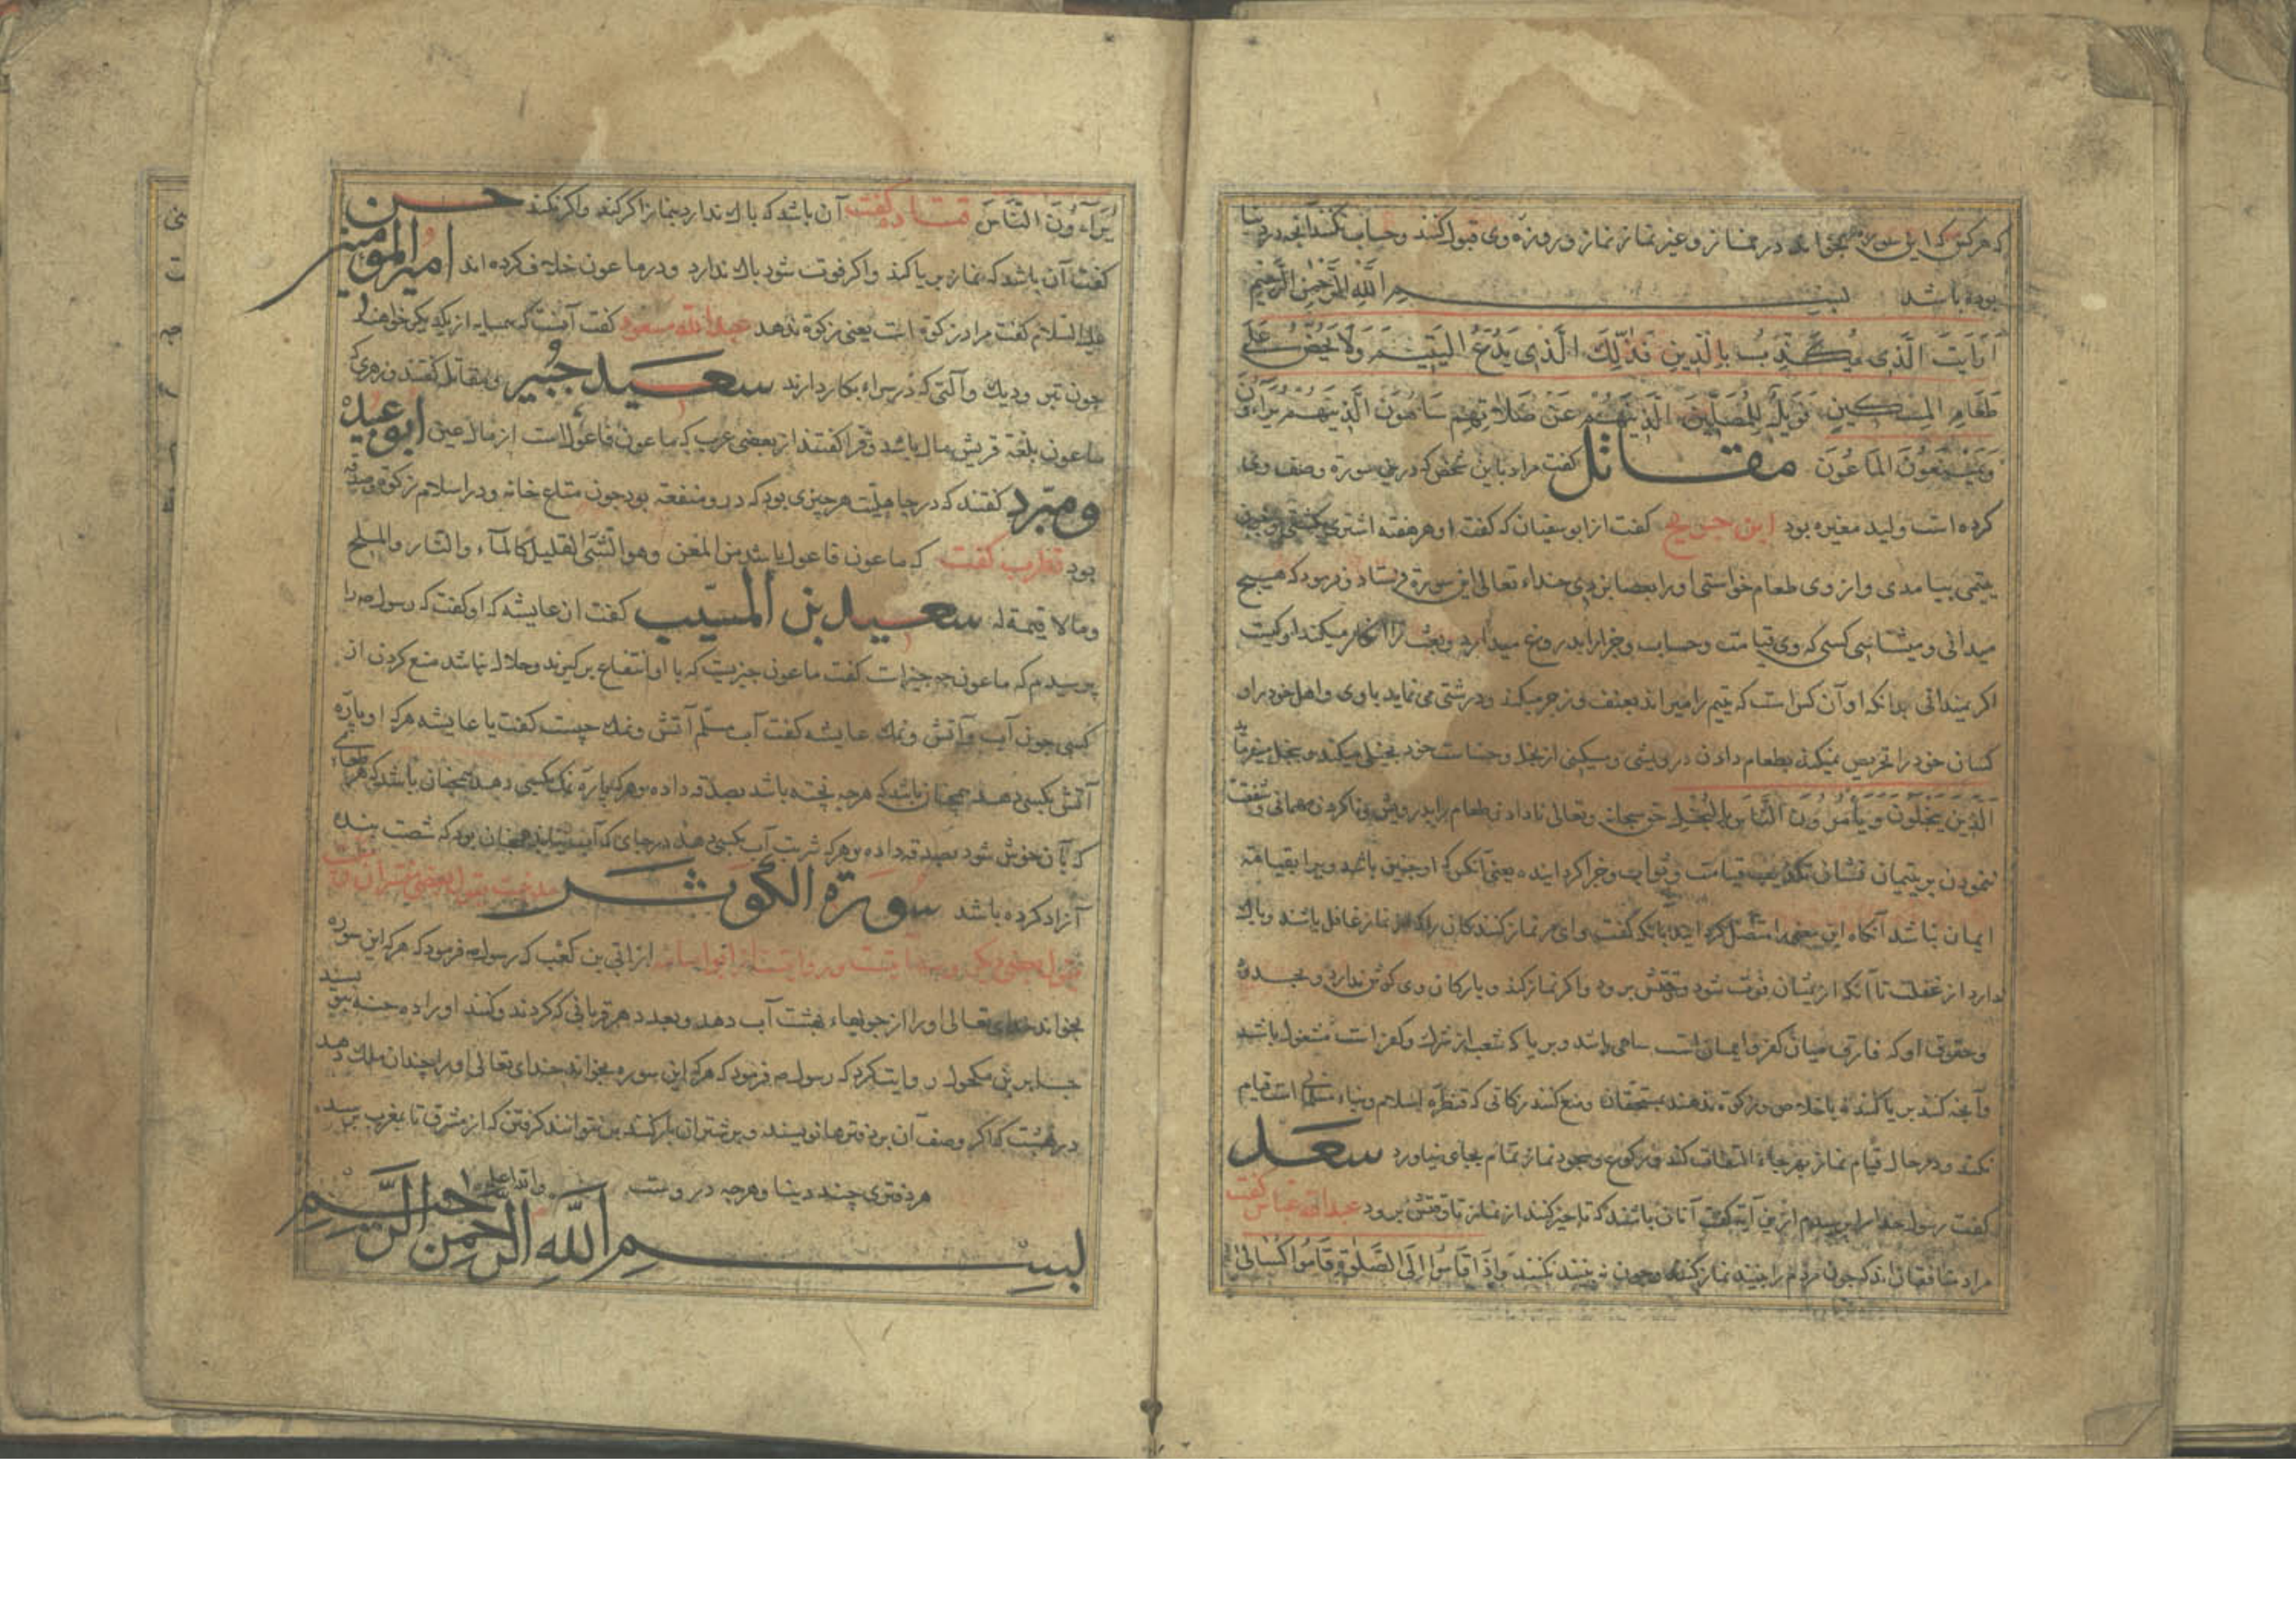 که هرکس که این سوره بخواند در نماز و غیر نماز نماز و روزه وی قبول کنند و حساب نکنند آنچه در دنیا
بوده باشد بسم الله الرحمن الرحیم
اَرَاَیتَ الَّذی یُکَذِّبُ بِالدّینِ فَذٰلِكَ الَّذی یَدُعُّ الیَتیمَ وَلَا یَحُضُّ عَلٰی
طَعَامِ المِسکینِ فَوَیلٌ لِلمُصَلّینَ الَّذینَ هُم عَن صَلَاتِهِم سَاهُونَ الَّذینَ هُم یُرَاءُونَ
وَیَمنَعُونَ المَاعُونَ مقاتل کفت مراد باین شخص که درین سورة وصف وی
کرده است ولید مغیره بود ابن جریح کفت از ابو سفیان که کفت او هر هفته اشتری بکشتی و چون
یتیمی بیامدی و از وی طعام خواستی اورا بعصا بزدی خداء تعالی این سورة فرستاد و فرمود که هیچ
میدانی و میشناسی کسی که وی قیامت و حساب و جزا را بدروغ میدارد و بعث را انکار میکند او کیست
اکر نمیدانی بدانکه او آن کس است که یتیم را میراند بعنف و زجر میکند و درشتی می نماید باوی و اهل خود را و
کسان خود را تحریص نمیکند بطعام دادن درویشی و مسکینی از بخل و خساست خود بخیلی میکند و بخل میفرماید
اَلَّذینَ یَبخَلُونَ وَیَأمُرُونَ النَّاسَ بِالبُخلِ حق سبحانه وتعالی نادادن طعام را بدرویش و ناکردن مهمانی و شفقت
ننمودن بر یتیمان نشان تکذیب قیامت و ثواب و جزا کردانیده یعنی آنکس که او چنین باشد ویرا بقیامة
ایمان نباشد آنکاه این معنی را متصل کردانید بآنکه کفت وای بر نماز کنندکان را که از نماز غافل باشند و باك
دارد از غفلت تا آنکه ازیشان فوت شود و وقتش برود و اکر نماز کند و بارکان وی کوش ندارد و بحدود
و حقوق او که فارق میان کفر و ایمان است ساهی باشد و بریا که شعبه از شرك و کفر است مشغول باشد
و آنچه کنند بریا کنند نه باخلاص و زکوة ندهند بمستحقان و منع کنند زکاتی که قنطره اسلام و بنیاء مسلمانی است قیام
نکند و در حال قیام نماز بهر جاء التفات کند و رکوع و سجود نماز تمام بجای نیاورد سعد
کفت رسول خدا را پرسیدم ازین آیه کفت آنان باشند که تاخیر کنند از نماز تا وقتش برود عبدالله عباس کفت
مراد منافقان اند که چون مردم را بینند نماز کنند و چون نه بینند نکنند وَاِذَا قَامُوا اِلَی الصَّلٰوةِ قَامُوا کُسَالٰی
یُرَآءُونَ النَّاسَ قتاده کفت آن باشد که باك ندارد بنماز اکر کند و اکر نکند حسن
کفت آن باشد که نماز بریا کند و اکر فوت شود باك ندارد و در ماعون خلاف کرده اند امیر المومنین
علیه السلام کفت مراد زکوة است یعنی زکوة ندهد عبدالله مسعود کفت آنست که همسایه از یکدیکر خواهند
چون تبر و دیك و آلتی که در سراء بکار دارند سعید جبیر و مقاتل کفتند و زهری که
ماعون بلغة قریش مال باشد و فرا کفتند از بعضی عرب که ماعون فاعول است از مال عین ابو عبید
و مبرّد کفتند که در جاهلیت هر چیزی بود که درو منفعة بود چون متاع خانه و در اسلام زکوة و صدقه
بود قطرب کفت که ماعون فاعول باشد من المعن وهو الشئ القلیل کالمآء والنار والملح
وما لا قیمة له سعید بن المسیّب کفت از عایشه که او کفت که رسول را
پرسیدم که ماعون چه چیز است کفت ماعون چیزیست که با او انتفاع برکیرند و حلال نباشد منع کردن از
کسی چون آب و آتش و نمك عایشه کفت آب مسلّم آتش و نمك چیست کفت یا عایشه هرکه او پاره
آتش بکسی دهد همچنان باشد که هرچه پخته باشد بصدقه داده و هرکه پاره نمك بکسی دهد همچنان باشد که هر طعامی
که بآن خوش شود بصدقه داده و هرکه شربت آب بکسی دهد در جای که آب نیابند همچنان بود که شصت بنده
آزاد کرده باشد سورة الکوثر
از ابّی بن کعب که رسول فرمود که هرکه این سوره
بخواند خدای تعالی اورا از جویهاء بهشت آب دهد و بعدد هر قربانی که کردند و کنند اورا ده حسنه بنویسند
مکحول روایت کرد که رسول فرمود که هرکه این سوره بخواند خدای تعالی اورا چندان ملك دهد
در بهشت که اکر وصف آن بر دفترها نویسند و بر شتران بار کنند بر نتوانند کرفتن که از مشرق تا بمغرب برسد
هر دفتری چند دنیا و هرچه دروست والله اعلم
بسم الله الرحمن الرحیم